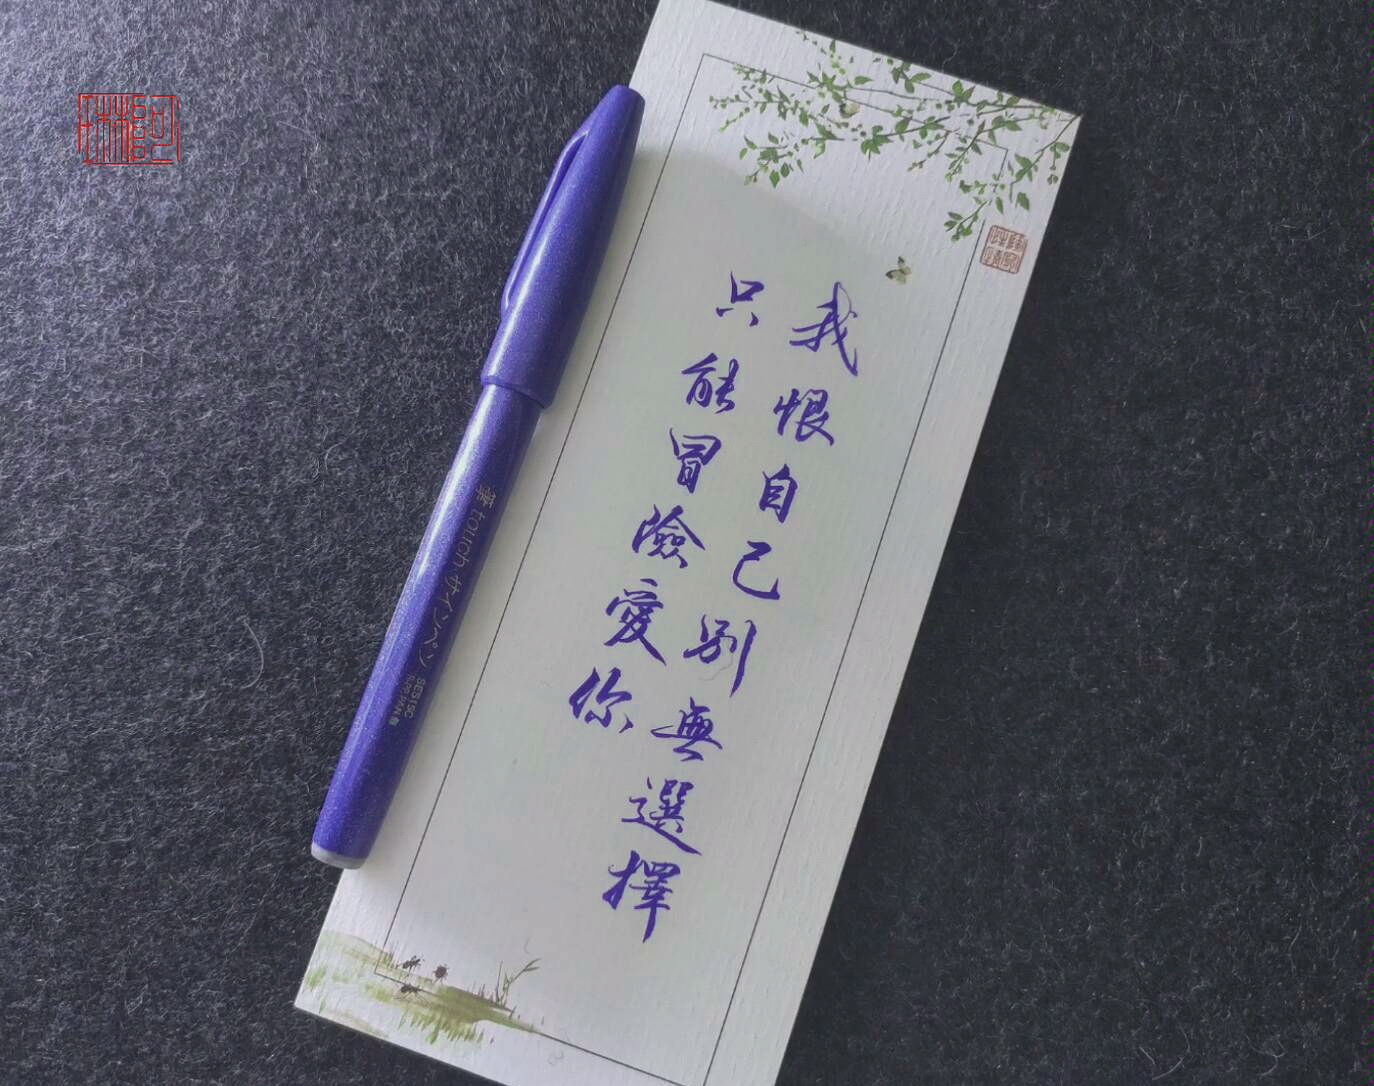 我恨自己别無選擇
只能冒險愛你
筆touchサインペン SES15C